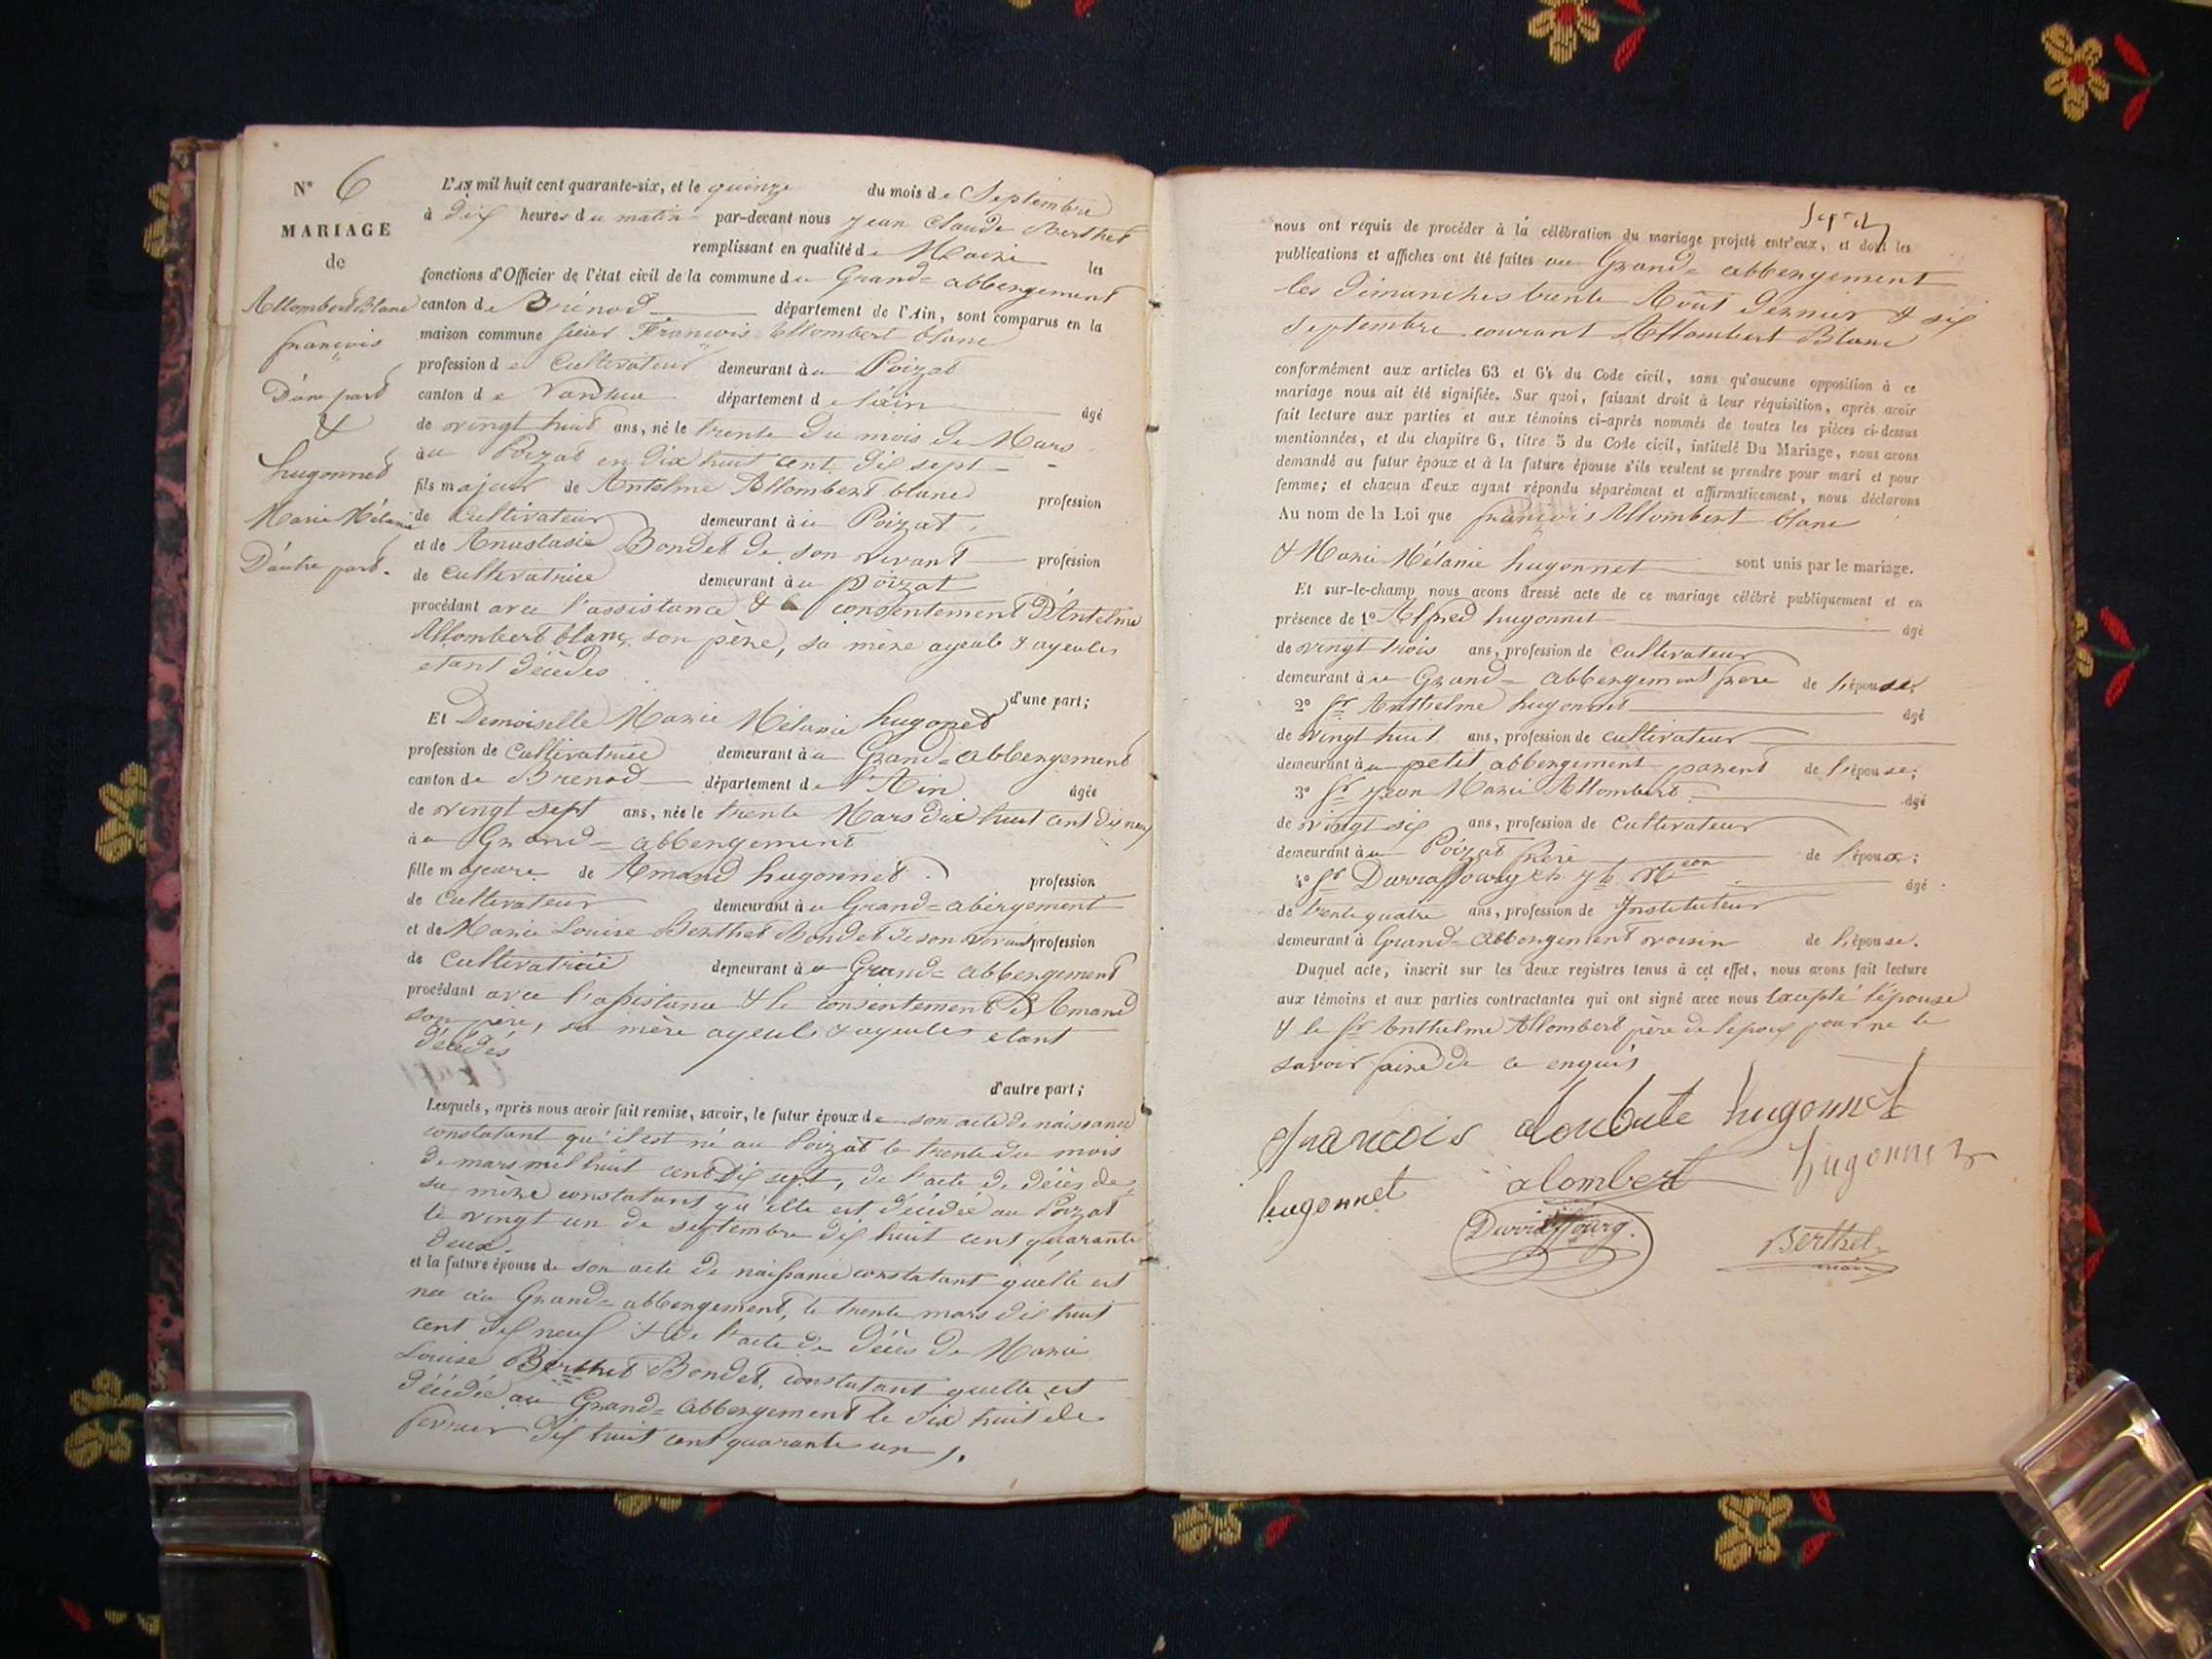 N° 6
MARIAGE
de
Allombert Blanc
françois
D'une part
&
hugonnet
Marie Mélanie
D'autre part.
L'AN mil huit cent quarante-six, et le quinze du mois de Septembre
à dix heures du matin par-devant nous Jean Claude Berthet
remplissant en qualité de Maire les
fonctions d'Officier de l'état civil de la commune du Grand=abbergement
canton de Brénod département de l'Ain, sont comparus en la
maison commune sieur François Allombert blanc
profession de Cultivateur demeurant au Poizat
canton de Nantua département de l'ain âgé
de vingt huit ans, né le trente du mois de Mars
au Poizat en dix huit cent dix sept
fils majeur de Antelme Allombert blanc profession
de Cultivateur demeurant au Poizat,
et de Anastasie Bondet de son vivant profession
de cultivatrice demeurant au poizat
procédant avec l'assistance & le consentement D'Antelme
Allombert blanc son père, sa mère ayeuls & ayeules
etant décédés
d'une part;
Et Demoiselle Marie Mélanie hugonet
profession de Cultivatrice demeurant au Grand=abbergement
canton de Brenod département de l'Ain âgée
de vingt sept ans, née le trente Mars dix huit cent dix neuf
au Grand=abbergement
fille majeure de Amand hugonnet profession
de Cultivateur demeurant au Grand=abergement
et de Marie Louise Berthet Bondet de son vivant profession
de Cultivatrice demeurant au Grand=abbergement
procédant avec l'assistance & le consentement D'Amand
son père, sa mère ayeuls & ayeules etant
décédés
d'autre part;
Lesquels, après nous avoir fait remise, savoir, le futur époux de son acte de naissance
constatant qu'il est né au Poizat le trente du mois
de mars mil huit cent dix sept, de l'acte de décès de
sa mère constatant qu'elle est décédée au Poizat
le vingt un de septembre dix huit cent quarante
deux.
et la future épouse de son acte de naissance constatant quelle est
née au Grand=abbergement, le trente mars dix huit
cent dix neuf & de l'acte de décès de Marie
Louise Berthet Bondet, constatant quelle est
décédée au Grand=abbergement le dix huit de
fevrier dix huit cent quarante un
nous ont requis de procéder à la célébration du mariage projeté entr'eux, et dont les
publications et affiches ont été faites au Grand=abbergement
les dimanches trente Août dernier & six
septembre courant Allombert Blanc
conformément aux articles 63 et 64 du Code civil, sans qu'aucune opposition à ce
mariage nous ait été signifiée. Sur quoi, faisant droit à leur réquisition, après avoir
fait lecture aux parties et aux témoins ci-après nommés de toutes les pièces ci-dessus
mentionnées, et du chapitre 6, titre 5 du Code civil, intitulé Du Mariage, nous avons
demandé au futur époux et à la future épouse s'ils veulent se prendre pour mari et pour
femme; et chacun d'eux ayant répondu séparément et affirmativement, nous déclarons
Au nom de la Loi que françois Allombert blanc
& Marie Mélanie hugonnet sont unis par le mariage.
Et sur-le-champ nous avons dressé acte de ce mariage célébré publiquement et en
présence de 1° Alfred hugonnet âgé
de vingt trois ans, profession de cultivateur
demeurant au Grand=abbergement frere de l'épouse;
2° Sr Anthelme hugonnet âgé
de vingt huit ans, profession de cultivateur
demeurant au petit abbergement parent de l'épouse;
3° Sr Jean Marie Allombert âgé
de vingt six ans, profession de Cultivateur
demeurant au Poizat frère de l'époux;
4° Sr Durraffourg âgé
de trente quatre ans, profession de Instituteur
demeurant à Grand=abbergement voisin de l'épouse.
Duquel acte, inscrit sur les deux registres tenus à cet effet, nous avons fait lecture
aux témoins et aux parties contractantes qui ont signé avec nous Excepté l'épouse
& le Sr Anthelme Allombert père de lepoux pour ne le
savoir faire de ce enquis
francois hugonnet
hugonnet alombert hugonnet
Durraffourg. Berthet
maire